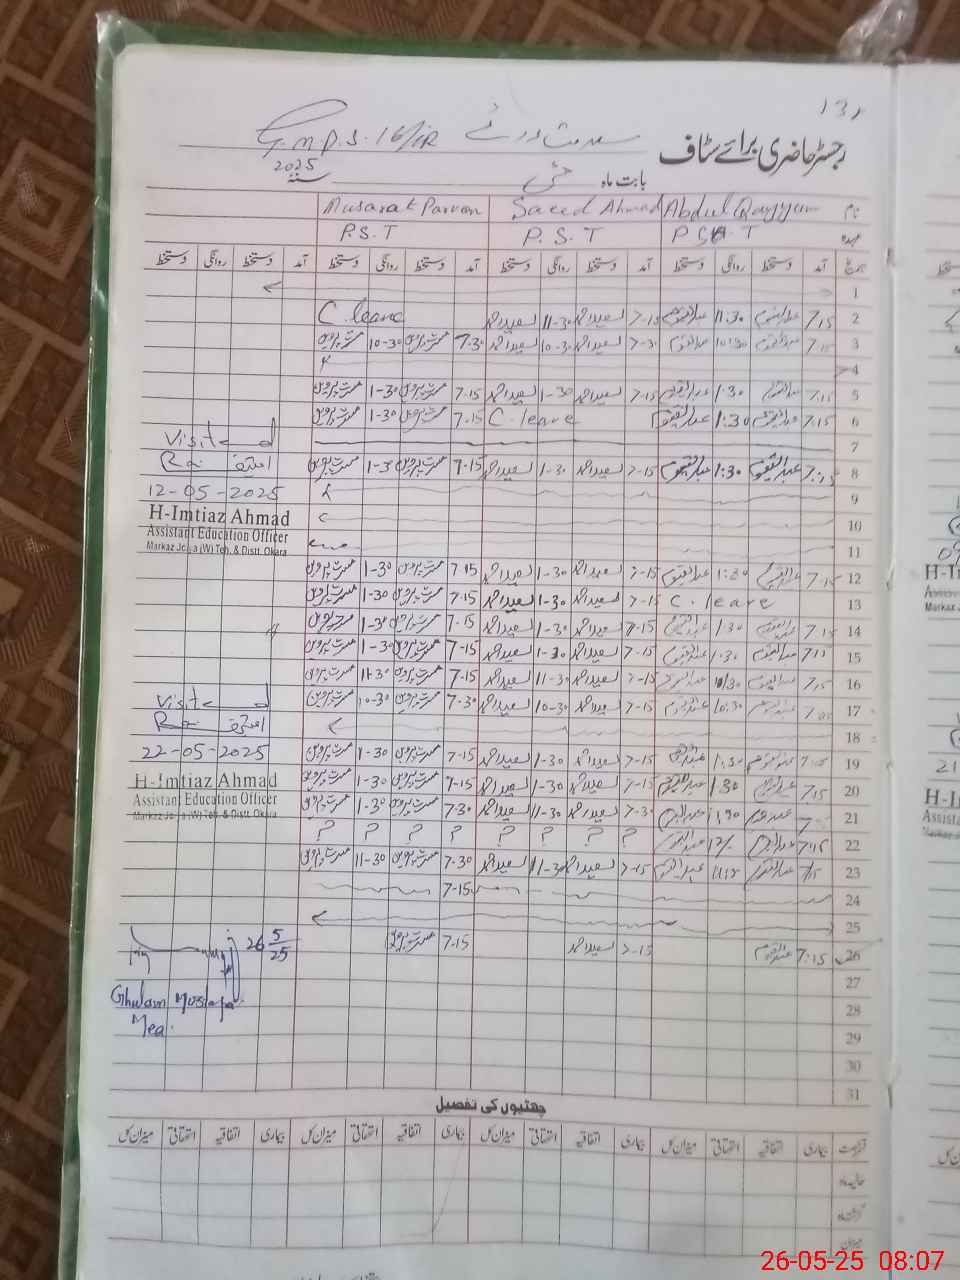 131
G.M.P.S. 16/1R
رجسٹر حاضری برائے سٹاف
بابت ماہ مئی سنہ 2025
نام Abdul Qayyum Saeed Ahmad Musarat Parveen
عہدہ P.S.T P.S.T P.S.T
تاریخ آمد دستخط روانگی دستخط آمد دستخط روانگی دستخط آمد دستخط روانگی دستخط آمد دستخط روانگی دستخط
1
2 7.15 عبدالقیوم 11.30 عبدالقیوم 7-15 سعید احمد 11-30 سعید احمد C. leave
3 7.15 عبدالقیوم 10:30 عبدالقیوم 7-30 سعید احمد 10-30 سعید احمد 7.30 مسرت پروین 10-30 مسرت پروین
4
5 7.15 عبدالقیوم 1.30 عبدالقیوم 7-15 سعید احمد 1-30 سعید احمد 7.15 مسرت پروین 1-30 مسرت پروین
6 7.15 عبدالقیوم 1:30 عبدالقیوم C. leave 7.15 مسرت پروین 1-30 مسرت پروین
7
8 7:15 عبدالقیوم 1:30 عبدالقیوم 7-15 سعید احمد 1-30 سعید احمد 7-15 مسرت پروین 1-30 مسرت پروین
9
10
11
12 7.15 عبدالقیوم 1:30 عبدالقیوم 7-15 سعید احمد 1-30 سعید احمد 7.15 مسرت پروین 1-30 مسرت پروین
13 C. leave 7-15 سعید احمد 1-30 سعید احمد 7.15 مسرت پروین 1-30 مسرت پروین
14 7.15 عبدالقیوم 1.30 عبدالقیوم 7-15 سعید احمد 1-30 سعید احمد 7-15 مسرت پروین 1-30 مسرت پروین
15 7.15 عبدالقیوم 1.30 عبدالقیوم 7-15 سعید احمد 1-30 سعید احمد 7-15 مسرت پروین 1-30 مسرت پروین
16 7.15 عبدالقیوم عبدالقیوم 7-15 سعید احمد 11-30 سعید احمد 7-15 مسرت پروین 11-30 مسرت پروین
17 عبدالقیوم 10:30 عبدالقیوم 7-15 سعید احمد 10-30 سعید احمد 7-30 مسرت پروین 10-30 مسرت پروین
18
19 7.15 عبدالقیوم 1:30 عبدالقیوم 7-15 سعید احمد 1-30 سعید احمد 7-15 مسرت پروین 1-30 مسرت پروین
20 7.15 عبدالقیوم 1.30 عبدالقیوم 7-15 سعید احمد 1-30 سعید احمد 7-15 مسرت پروین 1-30 مسرت پروین
21 عبدالقیوم عبدالقیوم 7-30 سعید احمد 11-30 سعید احمد 7-30 مسرت پروین 1-30 مسرت پروین
22 7:15 عبدالقیوم عبدالقیوم ? ? ? ? ? ? ? ?
23 7.15 عبدالقیوم عبدالقیوم 7-15 سعید احمد 11-30 سعید احمد 7.30 مسرت پروین 11-30 مسرت پروین
24 7-15
25
26 7:15 عبدالقیوم 7-15 سعید احمد 7-15 مسرت پروین
27
28
29
30
31
Visited
12-05-2025
H-Imtiaz Ahmad
Assistant Education Officer
Markaz (W) Teh. & Distt. Okara
Visited
22-05-2025
H-Imtiaz Ahmad
Assistant Education Officer
Markaz (W) Teh. & Distt. Okara
26 5/25
Ghulam Mustafa
Mea.
چھٹیوں کی تفصیل
بیماری اتفاقیہ استحقاقی میزان کل بیماری اتفاقیہ استحقاقی میزان کل بیماری اتفاقیہ استحقاقی میزان کل بیماری اتفاقیہ استحقاقی میزان کل
حالیہ ماہ
گزشتہ ماہ
میزان
26-05-25 08:07